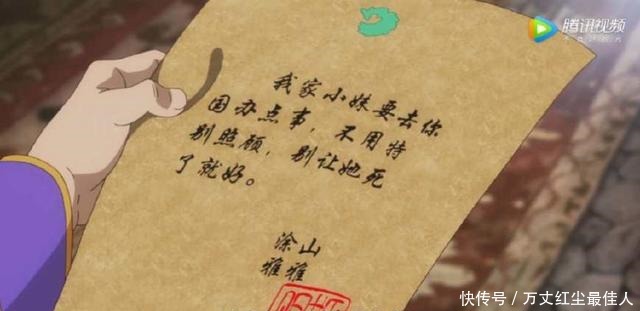 腾讯视频
我家小妹要去你
国办点事，不用特
别照顾，别让她死
了就好。
涂山
雅雅
快传号／万丈红尘最佳人